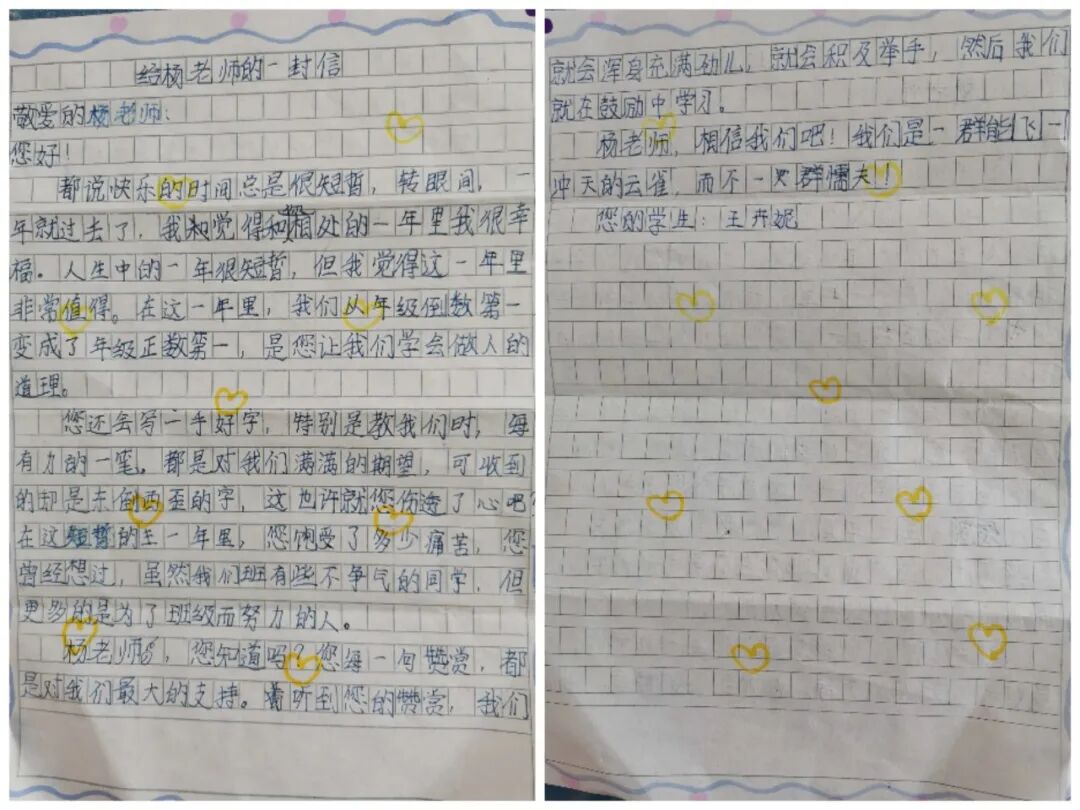 给杨老师的一封信
敬爱的杨老师：
您好！
都说快乐的时间总是很短暂，转眼间，一
年就过去了，我觉得和您相处的一年里我很幸
福。人生中的一年很短暂，但我觉得这一年里
非常值得。在这一年里，我们从年级倒数第一
变成了年级正数第一，是您让我们学会做人的
道理。
您还会写一手好字，特别是教我们时，每
有力的一笔。都是对我们满满的期望，可收到
的却是东倒西歪的字，这也许就您伤透了心吧？
在这短暂的一年里，您饱受了多少痛苦，您
曾经想过，虽然我们班有些不争气的同学，但
更多的是为了班级而努力的人。
杨老师，您知道吗？您每一句赞赏，都
是对我们最大的支持。听到您的赞赏，我们
就会浑身充满劲儿，就会积及举手，然后我们
就在鼓励中学习。
杨老师，相信我们吧！我们是一群能飞一
冲天的云雀，而不一群懦夫！
您的学生：王卉妮